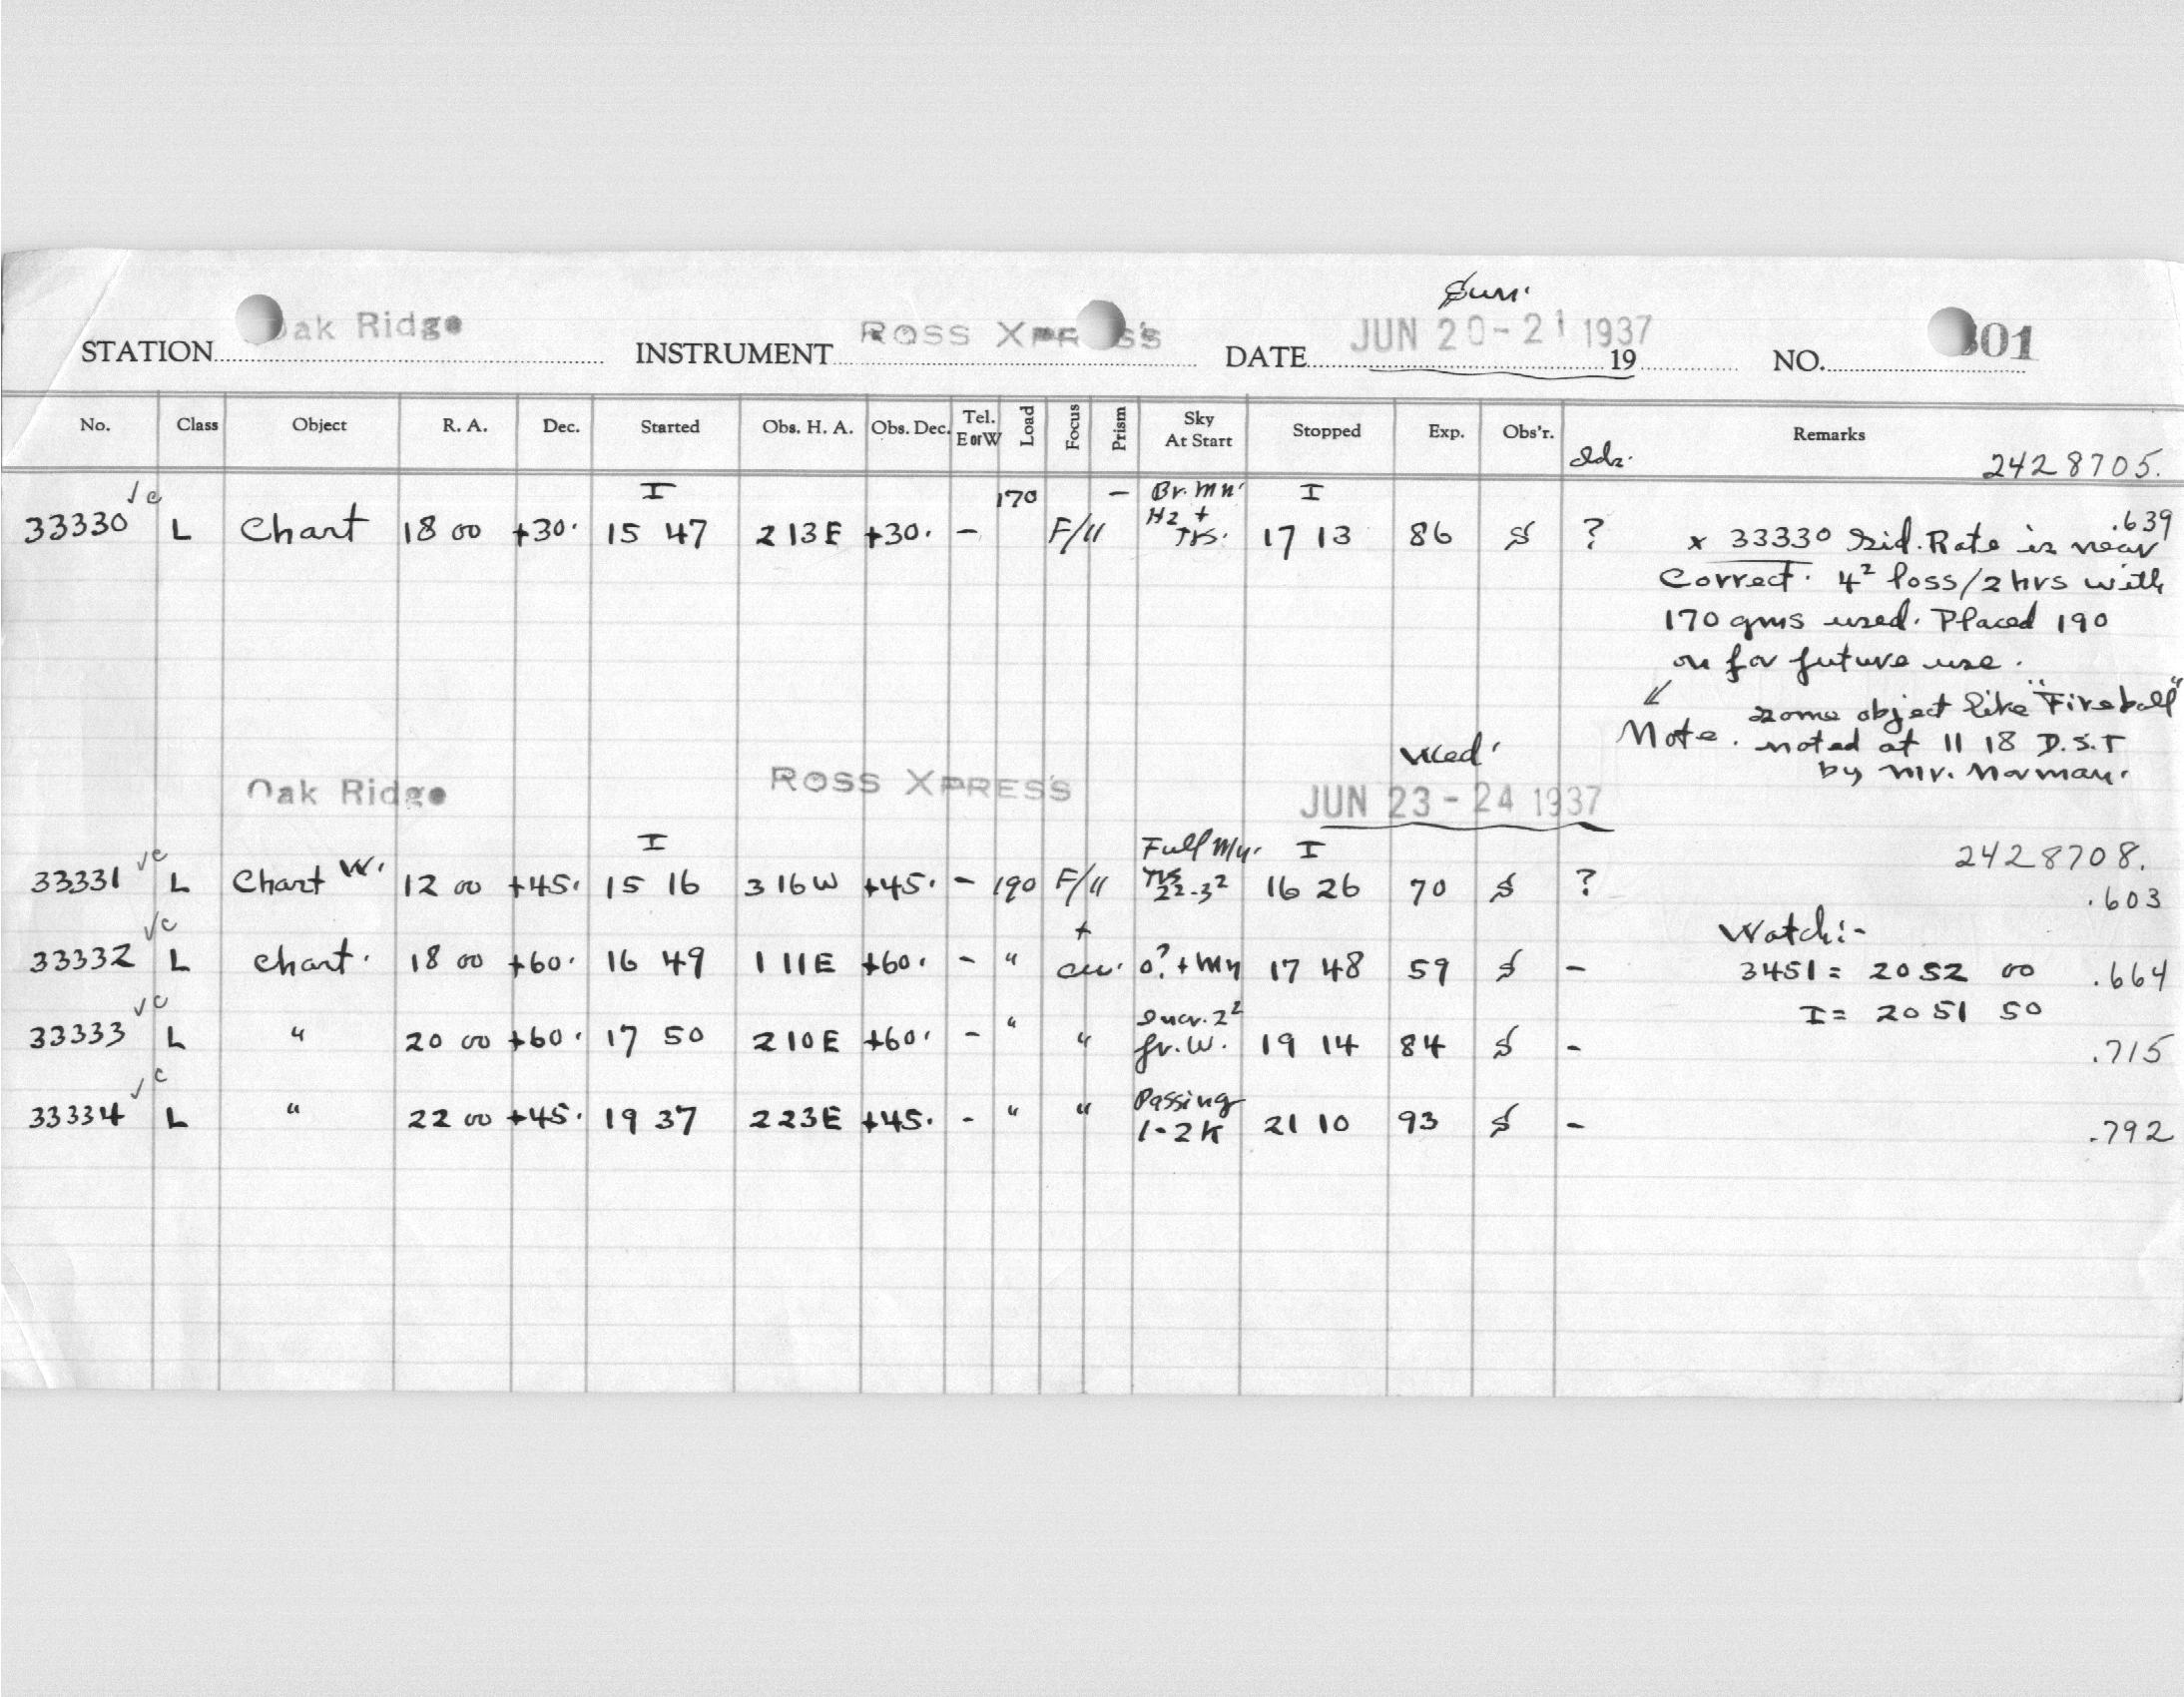 Sun.
STATION Oak Ridge INSTRUMENT ROSS XPRESS DATE JUN 20-21 1937 19 NO. 301
No. Class Object R. A. Dec. Started Obs. H. A. Obs. Dec. Tel. E or W Load Focus Prism Sky At Start Stopped Exp. Obs'r. Remarks
2428705.
√c I 170 – Br. Mn. I
33330 L Chart 18 00 +30. 15 47 2 13 E +30. – F/11 Hz + 17 13 86 ? .639
x 33330 Sid. Rate is near
Correct. 4² loss/2 hrs with
170 gms used. Placed 190
on for future use.
Note. some object like "Fireball"
noted at 11 18 D.S.T
by Mr. Norman.
Wed.
Oak Ridge ROSS XPRESS JUN 23-24 1937
√c I Full Mn. I 2428708.
33331 L Chart W. 12 00 +45. 15 16 3 16 W +45. – 190 F/11 2²-3² 16 26 70 ? .603
Watch:-
√c +
33332 L Chart. 18 00 +60. 16 49 1 11 E +60. – " o? + Mn 17 48 59 – 3451 = 20 52 00 .664
√c I = 20 51 50
33333 L " 20 00 +60. 17 50 2 10 E +60. – " " Incr. 2² fr. W. 19 14 84 – .715
√c
33334 L " 22 00 +45. 19 37 2 23 E +45. - " " Passing 1-2K 21 10 93 – .792